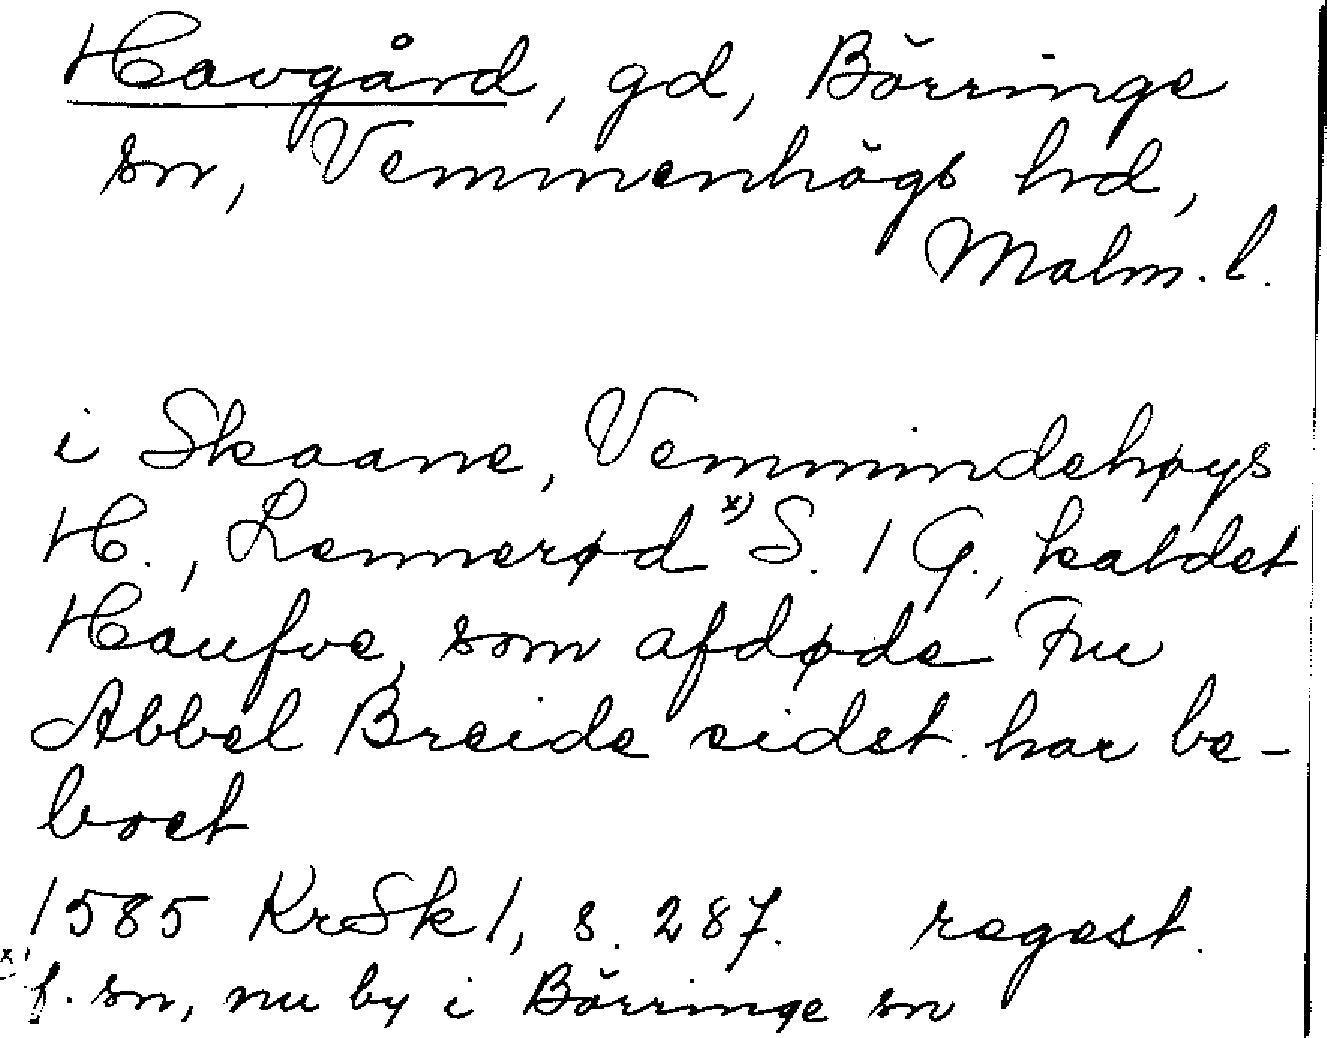 Havgård, gd, Börringe
sn, Vemmenhögs hrd,
Malm. l.
i Skaane, Vemmindehøys
H., Lemmerød x) S. 1 G., kaldet
Haufve, som afdøde Fru
Abbel Breide sidst har be-
boet
1585 KrSk 1, s. 287. regest.
x) f. sn, nu by i Börringe sn